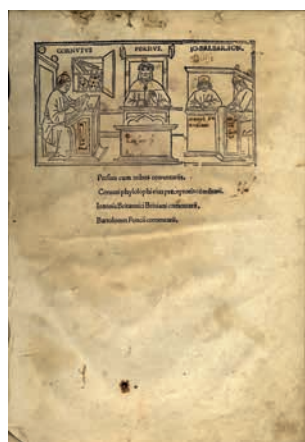 CORNVTVS PERSIVS. IO. BA. BAR. FON.
Persius cum tribus commentis.
Cornuti phylosophi eius præceptoris
Ioannis Britannici Brixiani commentarii.
Bartolomei Foncii commentarii.